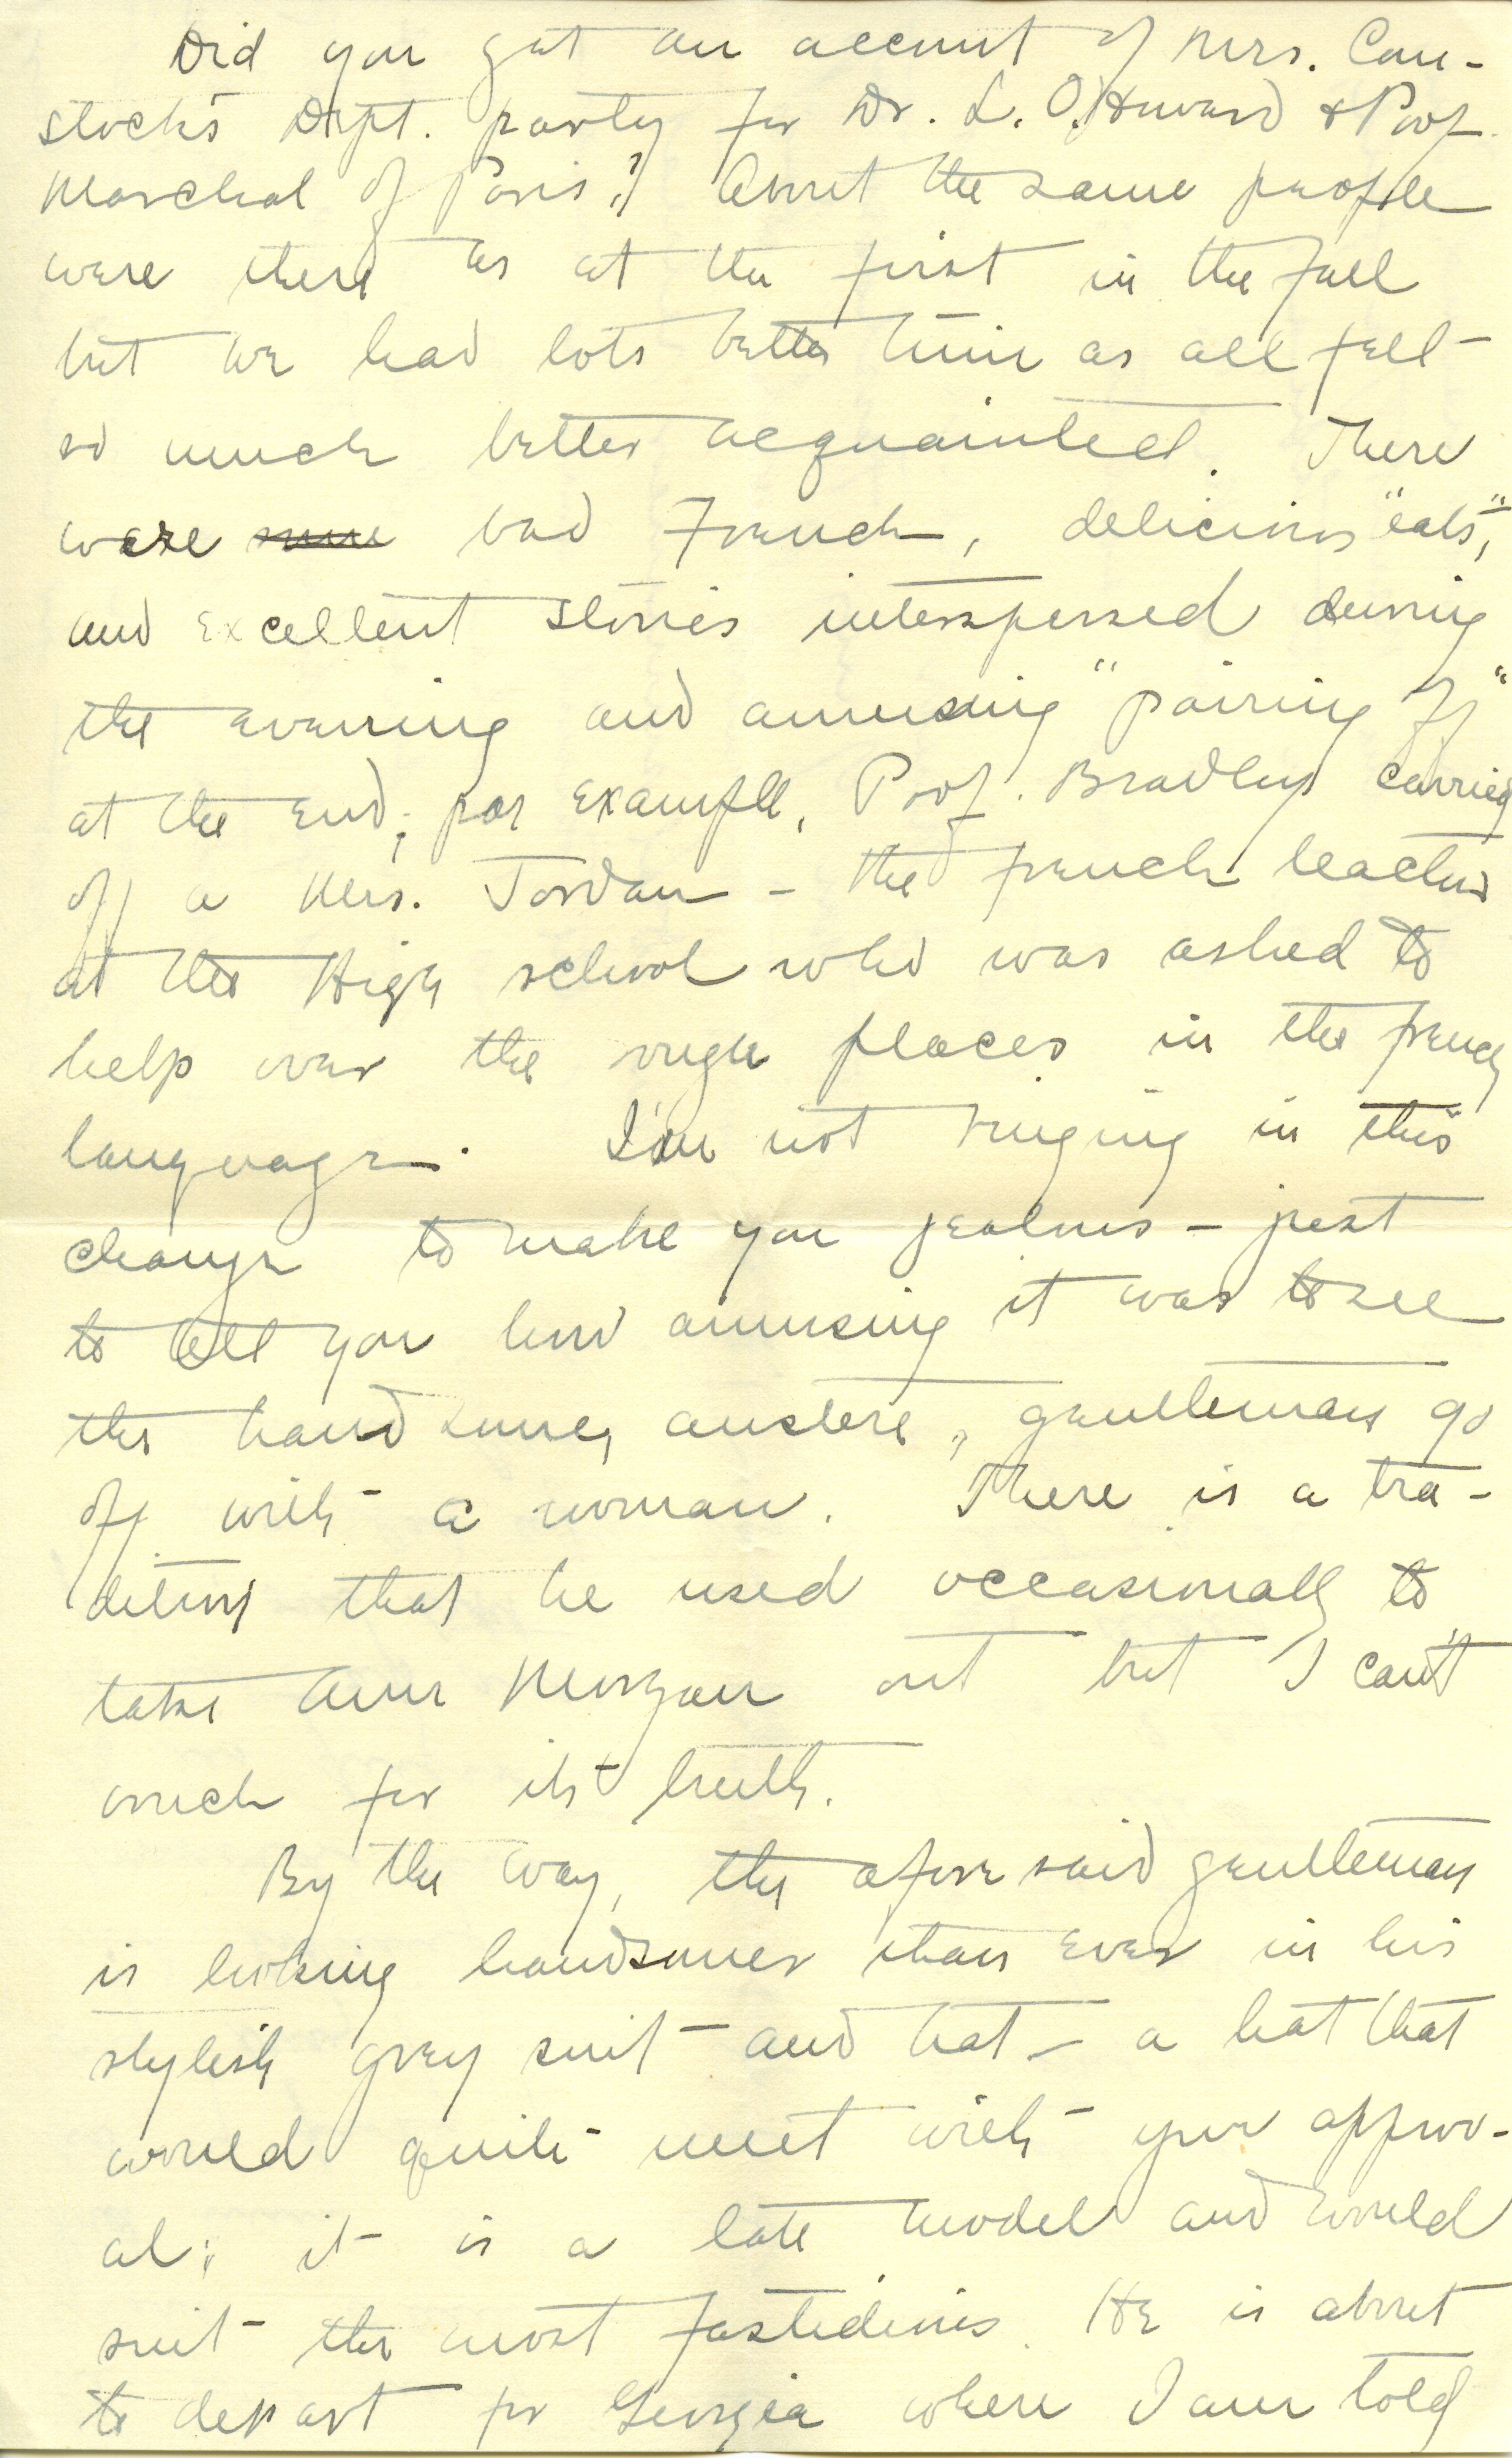 Did you get an account of Mrs. Com-
stock's Dept. party for Dr. L. O. Howard & Prof.
Marchal of Paris? About the same people
were there as at the first in the fall
but we had lots better time as all felt
so much better acquainted. There
were some bad French, delicious "eats",
and excellent stories interspersed during
the evening and amusing "pairing off"
at the end; par example, Prof. Bradley carried
off a Mrs. Jordan - the french teacher
at the High school who was asked to
help over the rough places in the french
language. I'm not ringing in this
change to make you jealous - just
to tell you how amusing it was to see
the handsome, austere, gentleman go
off with a woman. There is a tra-
dition that he used occasionally to
take Ann Morgan out but I can't
vouch for its truth.
By the way, the aforesaid gentleman
is looking handsomer than ever in his
stylish grey suit and hat - a hat that
would quite meet with your approv-
al; it is a late model and would
suit the most fastidious. He is about
to depart for Georgia where I am told